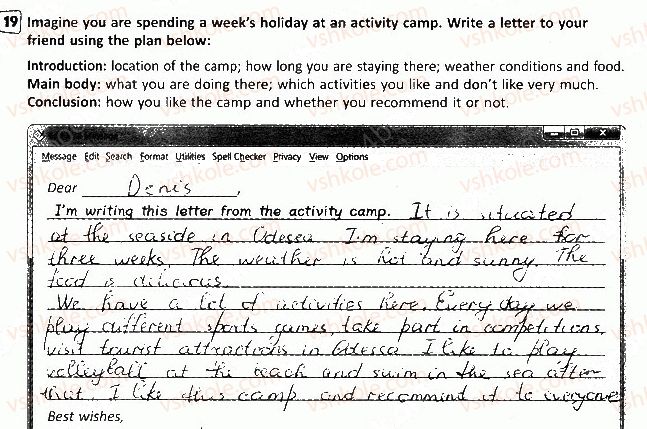 19 Imagine you are spending a week's holiday at an activity camp. Write a letter to your
friend using the plan below:
Introduction: location of the camp; how long you are staying there; weather conditions and food.
Main body: what you are doing there; which activities you like and don't like very much.
Conclusion: how you like the camp and whether you recommend it or not.
Message Edit Search Format Utilities Spell Checker Privacy View Options
Dear Denis,
I'm writing this letter from the activity camp. It is situated
at the seaside in Odessa I'm staying here for
three weeks. The weather is hot and sunny. The
food is delicious.
We have a lot of activities here. Every day we
play different sports games, take part in competitions,
visit tourist attractions in Odessa I like to play
volleyball at the beach and swim in the sea after
that. I like this camp and recommend it to everyone
Best wishes,